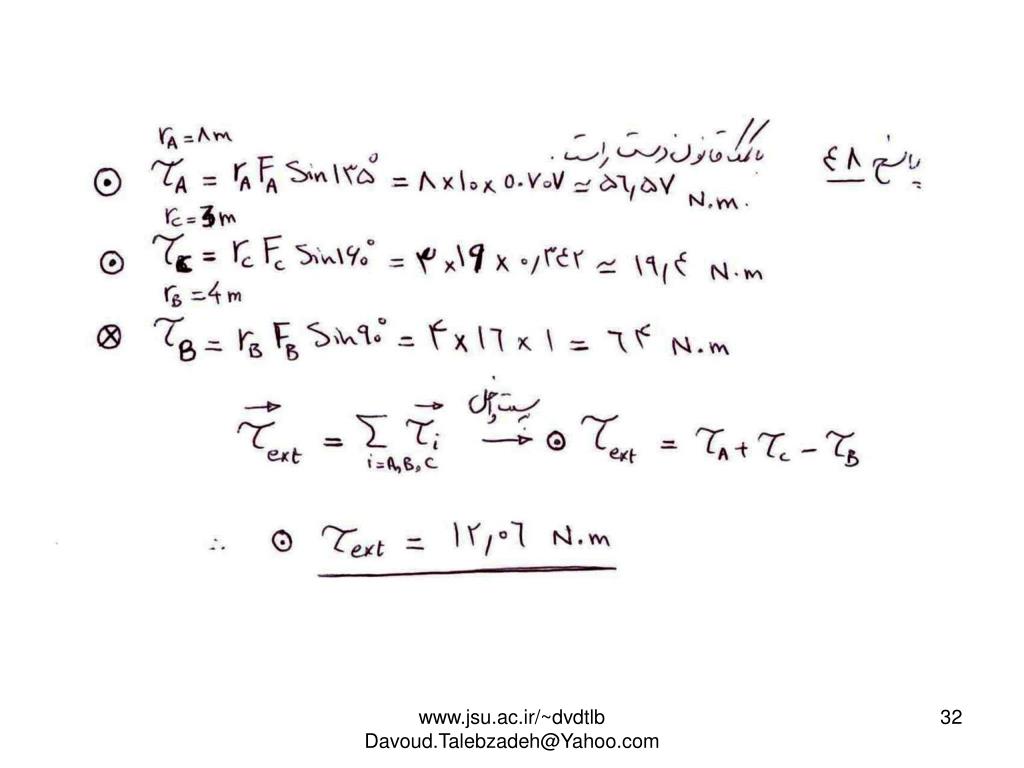 پاسخ ٤٨
با کمک قانون دست راست.
r_A = ۸ m
⊙ τ_A = r_A F_A Sin ۱۳۵° = ۸ × ۱۰ × 0.۷۰۷ ≃ ۵٦,۵۷ N.m.
r_C = 3 m
⊙ τ_C = r_C F_C Sin ۱۶۰° = ۳ × ۱9 × ۰,۳٤۲ ≃ ۱۹,٤ N.m
r_B = 4 m
⊗ τ_B = r_B F_B Sin ۹۰° = ۴ × ۱٦ × ۱ = ٦۴ N.m
τ⃗_ext = Σ_{i=A,B,C} τ⃗_i ⟶ ⊙ τ_ext = τ_A + τ_C − τ_B
∴ ⊙ τ_ext = ۱۲,۰٦ N.m
www.jsu.ac.ir/~dvdtlb
Davoud.Talebzadeh@Yahoo.com
32